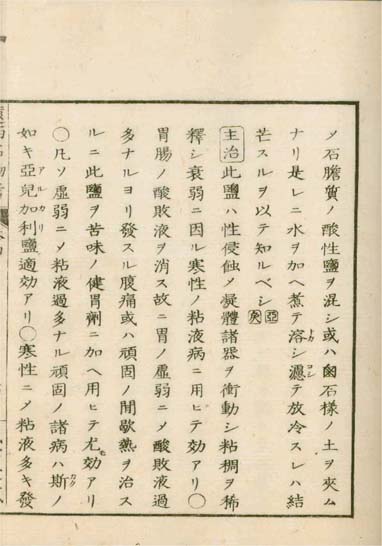 メ石膽質ノ酸性鹽ヲ混シ或ハ鹵石樣ノ土ヲ夾ム
ナリ是レニ水ヲ加ヘ煮テ溶シ濾テ放冷スレハ結
芒スルヲ以テ知ルベシ亞矣
主治此鹽ハ性侵蝕メ凝體諸器ヲ衝動シ粘稠ヲ稀
釋シ衰弱ニ因ル寒性ノ粘液病ニ用ヒテ効アリ〇
胃腸ノ酸敗液ヲ消ス故ニ胃ノ虛弱ニメ酸敗液過
多ナルヨリ發スル腹痛或ハ頑固ノ間歇熱ヲ治ス
ルニ此鹽ヲ苦味ノ健胃劑ニ加ヘ用ヒテ尤効アリ
〇凡ソ虛弱ニメ粘液過多ナル頑固ノ諸病ハ斯ノ
如キ亞兒加利鹽適効アリ〇寒性ニメ粘液多キ發